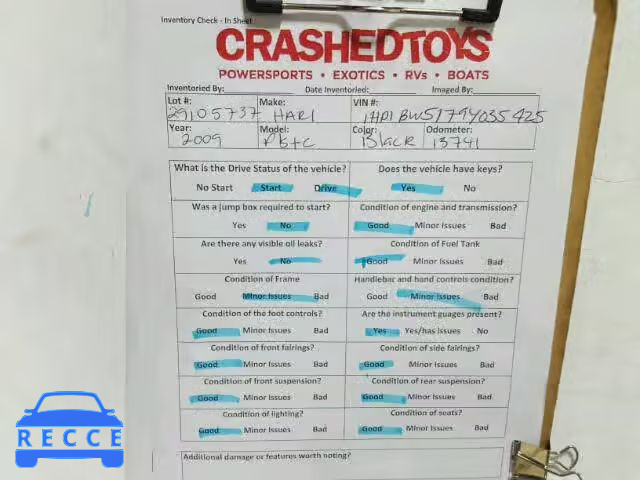 Inventory Check - In Sheet
CRASHEDTOYS
POWERSPORTS • EXOTICS • RVs • BOATS
Inventoried By: Date Inventoried: Imaged By:
Lot #: Make: VIN #:
29105737 HARI 1HD1BW5179Y035425
Year: Model: Color: Odometer:
2009 Black 13741
What is the Drive Status of the vehicle? Does the vehicle have keys?
No Start Start Drive Yes No
Was a jump box required to start? Condition of engine and transmission?
Yes No Good Minor Issues Bad
Are there any visible oil leaks? Condition of Fuel Tank
Yes No Good Minor Issues Bad
Condition of Frame Handlebar and hand controls condition?
Good Minor Issues Bad Good Minor Issues Bad
Condition of the foot controls? Are the instrument guages present?
Good Minor Issues Bad Yes Yes/has issues No
Condition of front fairings? Condition of side fairings?
Good Minor Issues Bad Good Minor Issues Bad
Condition of front suspension? Condition of rear suspension?
Good Minor Issues Bad Good Minor Issues Bad
Condition of lighting? Condition of seats?
Good Minor Issues Bad Good Minor Issues Bad
Additional damage or features worth noting?
RECCE